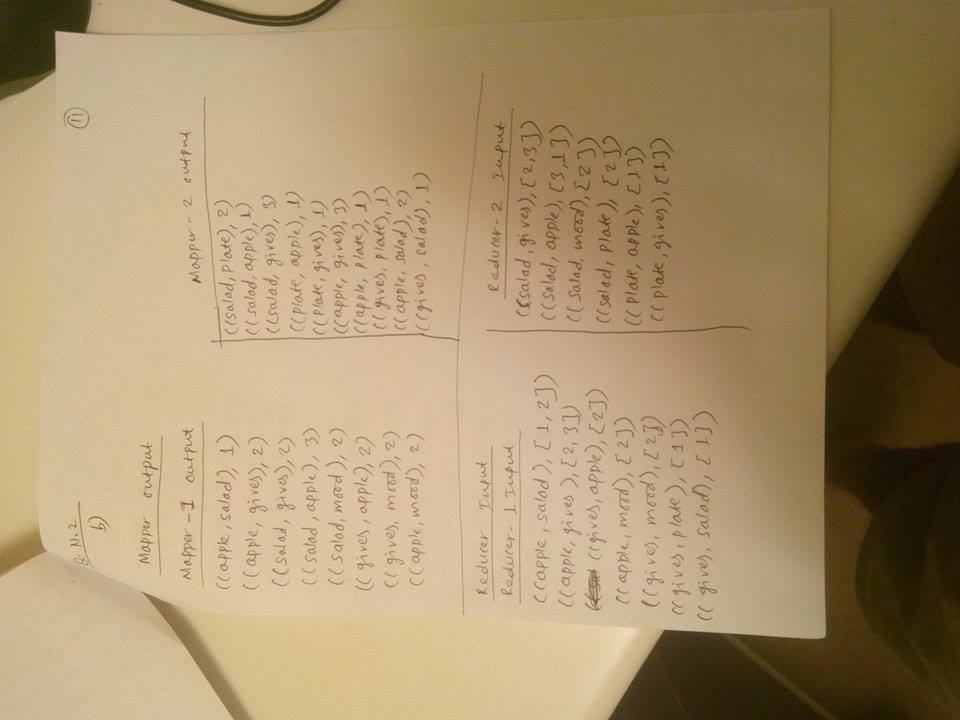 Q. N. 2
b)
11
Mapper output
Mapper - 1 output
((apple, salad), 1)
((apple, gives), 2)
((salad, gives), 2)
((salad, apple), 3)
((salad, mood), 2)
((gives, apple), 2)
((gives, mood), 2)
((apple, mood), 2)
Mapper - 2 output
((salad, plate), 2)
((salad, apple), 1)
((salad, gives), 3)
((plate, apple), 1)
((plate, gives), 1)
((apple, gives), 3)
((apple, plate), 1)
((gives, plate), 1)
((apple, salad), 2)
((gives, salad), 1)
Reducer Input
Reducer - 1 Input
((apple, salad), [1, 2])
((apple, gives), [2, 3])
((gives, apple), [2])
((apple, mood), [2])
((gives, mood), [2])
((gives, plate), [1])
((gives, salad), [1])
Reducer - 2 Input
((salad, gives), [2, 3])
((salad, apple), [3, 1])
((salad, mood), [2])
((salad, plate), [2])
((plate, apple), [1])
((plate, gives), [1])